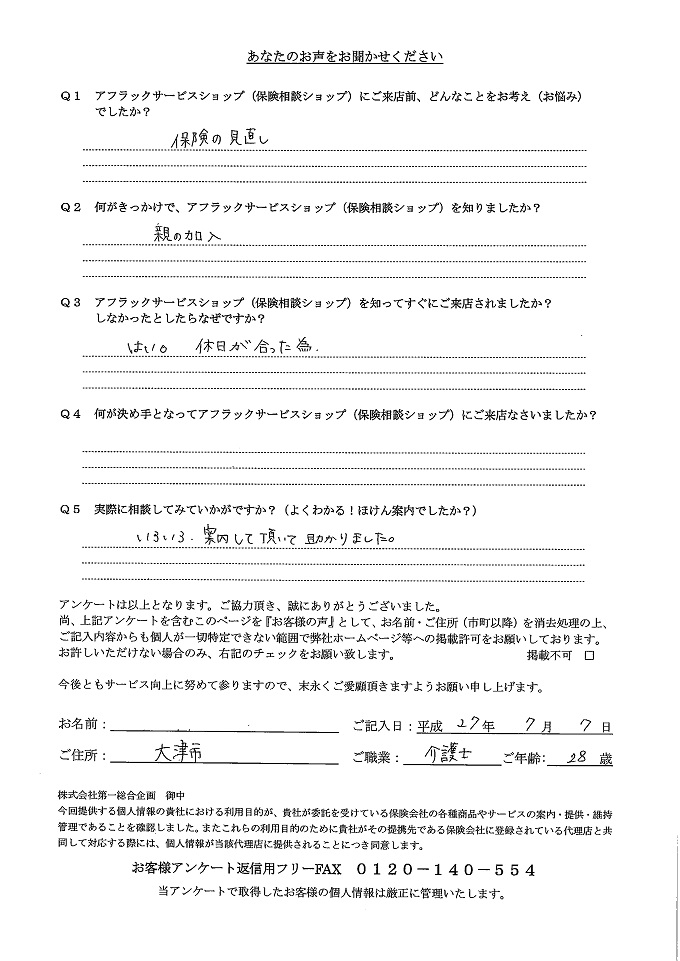 あなたのお声をお聞かせください
Q1 アフラックサービスショップ（保険相談ショップ）にご来店前、どんなことをお考え（お悩み）
でしたか？
保険の見直し
Q2 何がきっかけで、アフラックサービスショップ（保険相談ショップ）を知りましたか？
親の加入
Q3 アフラックサービスショップ（保険相談ショップ）を知ってすぐにご来店されましたか？
しなかったとしたらなぜですか？
はい。 休日が合った為.
Q4 何が決め手となってアフラックサービスショップ（保険相談ショップ）にご来店なさいましたか？
Q5 実際に相談してみていかがですか？（よくわかる！ほけん案内でしたか？）
いろいろ.案内して頂いて助かりました。
アンケートは以上となります。ご協力頂き、誠にありがとうございました。
尚、上記アンケートを含むこのページを『お客様の声』として、お名前・ご住所（市町以降）を消去処理の上、
ご記入内容からも個人が一切特定できない範囲で弊社ホームページ等への掲載許可をお願いしております。
お許しいただけない場合のみ、右記のチェックをお願い致します。 掲載不可 □
今後ともサービス向上に努めて参りますので、末永くご愛顧頂きますようお願い申し上げます。
お名前： ご記入日：平成 27年 7月 7日
ご住所： 大津市 ご職業： 介護士 ご年齢： 28 歳
株式会社第一総合企画 御中
今回提供する個人情報の貴社における利用目的が、貴社が委託を受けている保険会社の各種商品やサービスの案内・提供・維持
管理であることを確認しました。またこれらの利用目的のために貴社がその提携先である保険会社に登録されている代理店と共
同して対応する際には、個人情報が当該代理店に提供されることにつき同意します。
お客様アンケート返信用フリーFAX 0120－140－554
当アンケートで取得したお客様の個人情報は厳正に管理いたします。